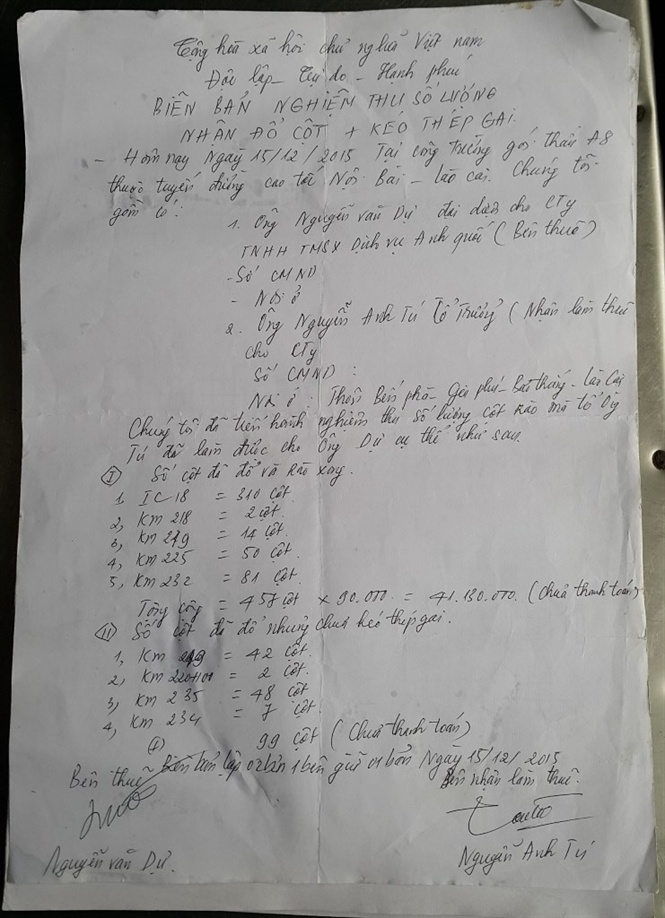 Cộng hòa xã hội chủ nghĩa Việt nam
Độc lập - Tự do - Hạnh phúc
BIÊN BẢN NGHIỆM THU SỐ LƯỢNG
NHÂN ĐỔ CỘT + KÉO THÉP GAI.
- Hôm nay Ngày 15/12/2015 Tại công trường gói thầu A8
thuộc tuyến đường cao tốc Nội Bài - Lào cai. Chúng tôi
gồm có:
1. Ông Nguyễn văn Dự đại diện cho CTy
TNHH TMSX Dịch vụ Anh quốc (Bên thuê)
- Số CMND
- Nơi ở
2. Ông Nguyễn Anh Tú Tổ Trưởng (Nhận làm thuê
cho CTy
Số CMND :
Nơi ở : Thôn Bến phà - Gia phú - Bảo thắng - Lào Cai
Chúng tôi đã tiến hành nghiệm thu Số lượng cột Rào mà tổ Ông
Tú đã làm được cho Ông Dự cụ thể như sau
I Số cột đã đổ và Rào xong.
1, IC 18 = 310 cột.
2, Km 218 = 2 cột.
3, Km 219 = 14 cột.
4, Km 225 = 50 cột.
5, Km 232 = 81 cột.
Tổng cộng = 457 cột × 90.000. = 41.130.000. (chưa thanh toán)
II Số cột đã đổ nhưng chưa kéo thép gai.
1, Km = 42 cột.
2, Km = 2 cột.
3, Km 235 = 48 cột
4, Km 234 = 7 cột.
99 cột (Chưa thanh toán)
Biên bản lập 02 bản 1 bên giữ 01 bản Ngày 15/12/2015
Bên thuê Bên nhận làm thuê.
Nguyễn văn Dự. Nguyễn Anh Tú